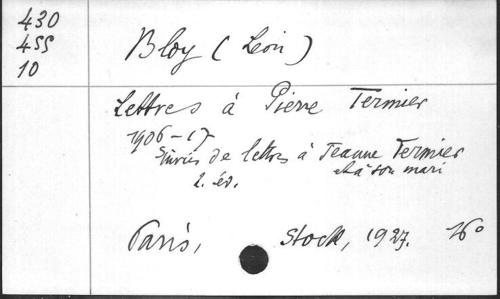 430
455
10
Bloy (Léon)
Lettres à Pierre Termier
1906-17
Suivies de lettres à Jeanne Termier
et à son mari
2. éd.
Paris, Stock, 1927. 16°